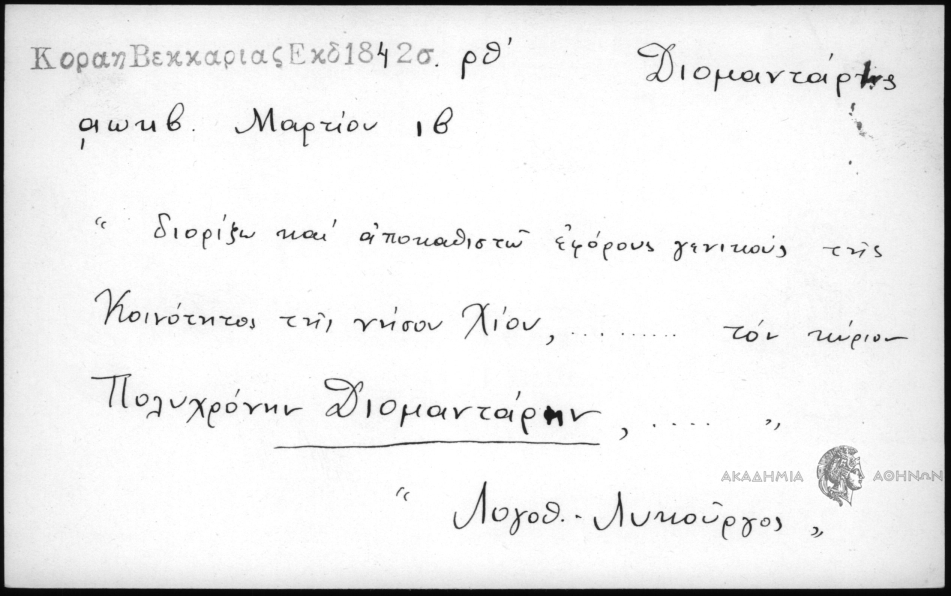 Κοραη Βεκκαριας Εκδ 1842 σ. ρθ' Διομαντάρης
͵αωκβ. Μαρτίου ιβ
“ διορίζω καί ἀποκαθιστῶ ἐφόρους γενικούς τῆς
Κοινότητος τῆς νήσου Χίου, ......... τόν κύριον
Πολυχρόνην Διομαντάρην, ..... „
ΑΚΑΔΗΜΙΑ ΑΘΗΝΩΝ
“ Λογοθ. - Λυκοῦργος „